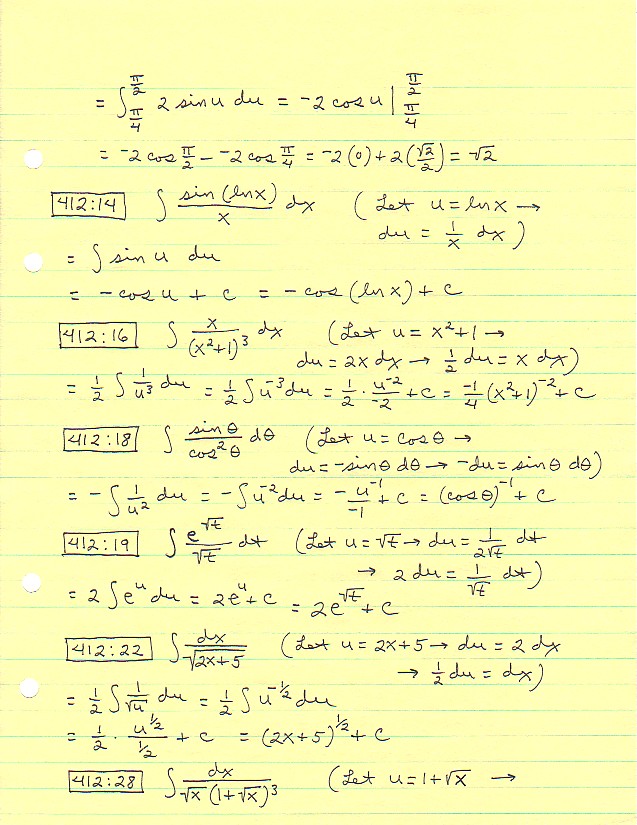 = ∫_{π/4}^{π/2} 2 sin u du = -2 cos u |_{π/4}^{π/2}
= -2 cos π/2 - -2 cos π/4 = -2(0) + 2(√2/2) = √2
412:14 ∫ sin(ln x)/x dx (Let u = ln x →
du = 1/x dx)
= ∫ sin u du
= -cos u + c = -cos(ln x) + c
412:16 ∫ x/(x²+1)³ dx (Let u = x²+1 →
du = 2x dx → ½ du = x dx)
= ½ ∫ 1/u³ du = ½ ∫ u⁻³ du = ½ · u⁻²/-2 + c = -1/4 (x²+1)⁻² + c
412:18 ∫ sin θ/cos² θ dθ (Let u = cos θ →
du = -sin θ dθ → -du = sin θ dθ)
= -∫ 1/u² du = -∫ u⁻² du = - u⁻¹/-1 + c = (cos θ)⁻¹ + c
412:19 ∫ e^√t/√t dt (Let u = √t → du = 1/(2√t) dt
→ 2 du = 1/√t dt)
= 2 ∫ e^u du = 2e^u + c = 2e^√t + c
412:22 ∫ dx/√(2x+5) (Let u = 2x+5 → du = 2 dx
→ ½ du = dx)
= ½ ∫ 1/√u du = ½ ∫ u^(-1/2) du
= ½ · u^(1/2)/(1/2) + c = (2x+5)^(1/2) + c
412:28 ∫ dx/(√x (1+√x)³) (Let u = 1+√x →